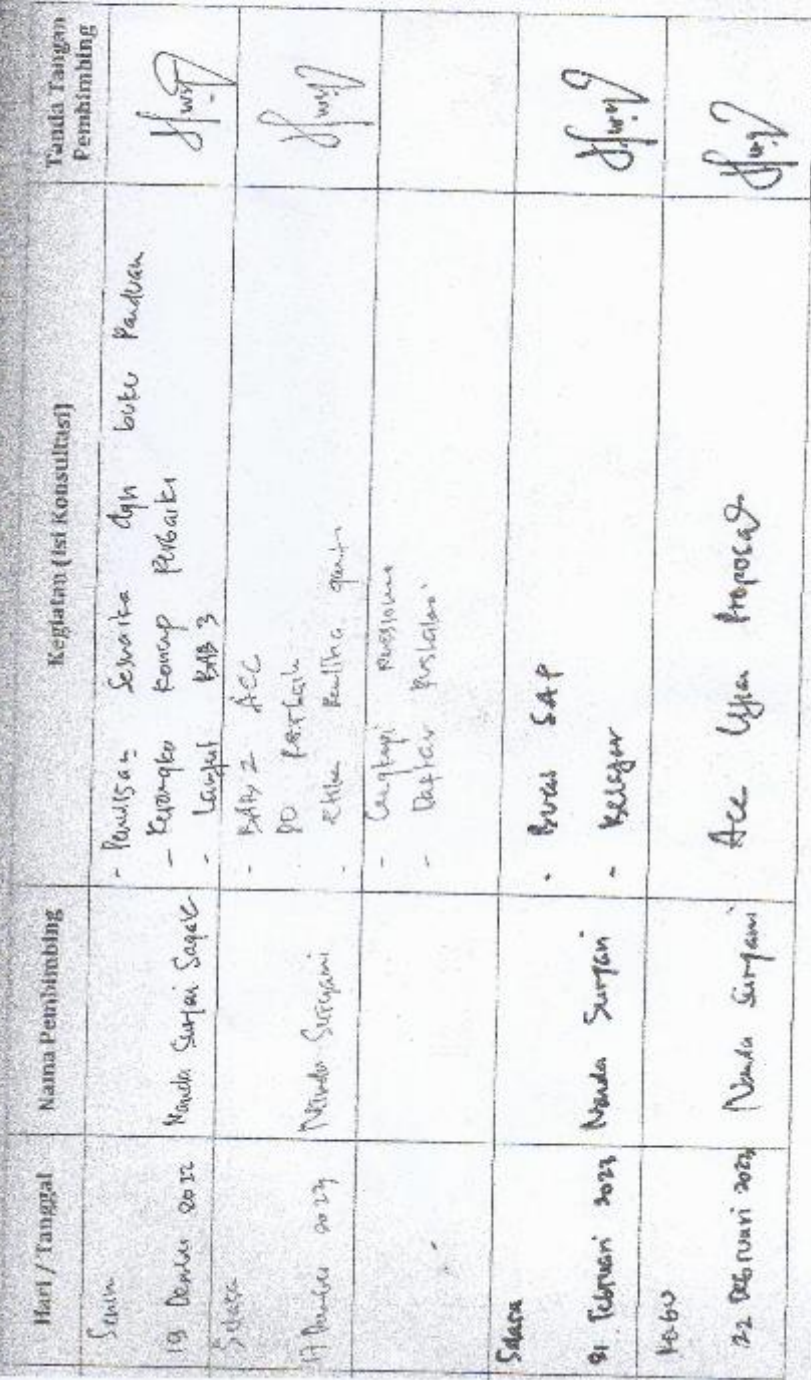 Hari / Tanggal
Nama Pembimbing
Kegiatan (Isi Konsultasi)
Tanda Tangan
Pembimbing
Senin
19 2022
Nanda Suryani Sagala
- Penulisan Sesuaika dgn buku Panduan
- Kerangka Konsep Perbaiki
- Lanjut BAB 3
Selasa
17 2023
Nanda Suryani
- BAB 2 ACC
DO
- etika
- Lengkapi
- Daftar
Selasa
21 Februari 2023
Nanda Suryani
- Buat SAP
- Belajar
Rabu
22 Februari 2023
Nanda Suryani
Acc Ujian Proposal